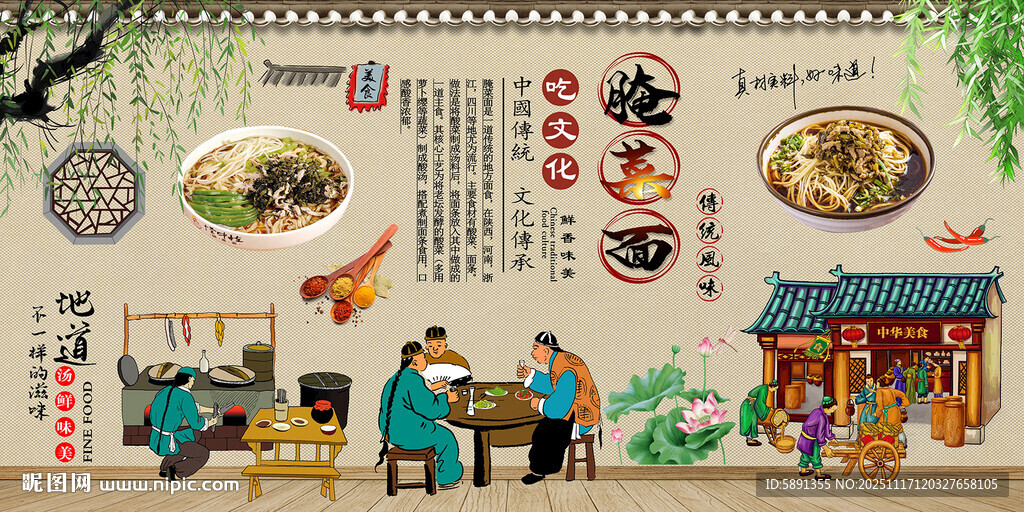 真材实料,好味道!
腌菜面
傳統風味
吃文化
鮮香味美
Chinese traditional
food culture
中國傳統 文化傳承
腌菜面是一道传统的地方面食，在陕西、河南、浙
江、四川等地尤为流行。主要食材有酸菜、面条，
做法是将酸菜制成汤料后，将面条放入其中做成的
一道主食。其核心工艺为将老坛发酵的酸菜（多用
萝卜缨等蔬菜）制成酸汤，搭配煮制面条食用，口
感酸香浓郁。
美食
地道
汤鲜味美
FINE FOOD
不一样的滋味
中华美食
昵图网 www.nipic.com
ID:5891355 NO:20251117120327658105